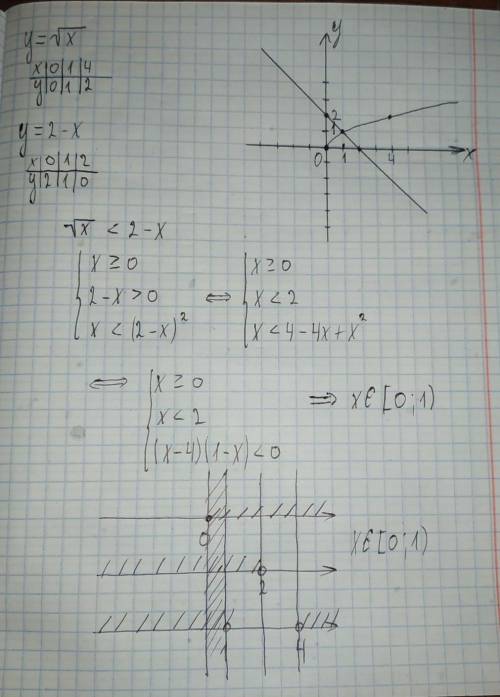 y = √x
x | 0 | 1 | 4
y | 0 | 1 | 2
y = 2 - x
x | 0 | 1 | 2
y | 2 | 1 | 0
y
2
1
0 1 4 x
√x < 2 - x
{ x ≥ 0
2 - x > 0
x < (2 - x)²
⇔ { x ≥ 0
x < 2
x < 4 - 4x + x²
⇔ { x ≥ 0
x < 2
(x - 4)(1 - x) < 0
⇒ x ∈ [0; 1)
0
x ∈ [0; 1)
2
1 4